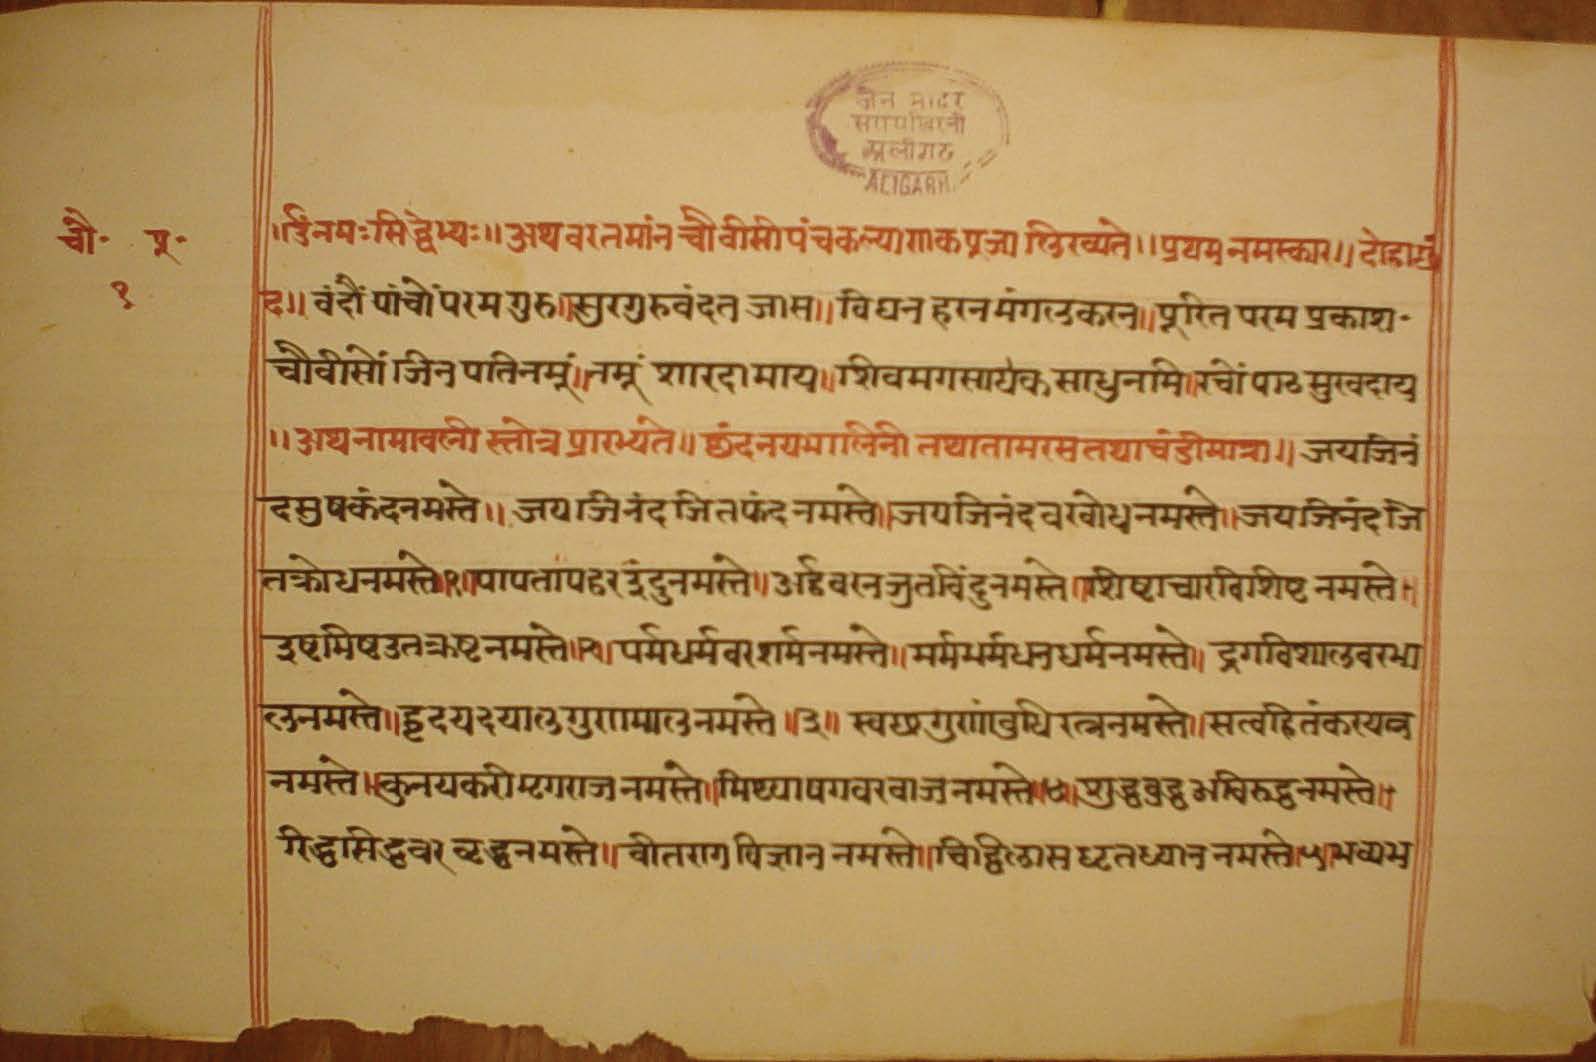 जैन मंदिर
अलीगढ
ALIGARH.
चौ॰ पू॰
१
॥ॐनमःसिद्धेभ्यः॥अथवरतमांनचौवीसीपंचकल्याणकपूजालिख्यते॥प्रथमनमस्कार॥दोहाछं
द॥वंदौंपांचोंपरमगुरु॥सुरगुरुवंदतजास॥विघनहरनमंगलकरन॥पूरितपरमप्रकाश॰
चौवीसोंजिनपतिनमूं॥नमूं शारदामाय॥शिवमगसाधकसाधुनमि॥रचोंपाठसुखदाय
॥अथनामावलीस्तोत्रप्रारभ्यते॥छंदनयमालिनीतथातामरसतथाचंडीमात्रा॥जयजिनं
दसुषकंदनमस्ते॥जयजिनंदजितफंदनमस्ते॥जयजिनंदवरवोधनमस्ते॥जयजिनंदजि
तक्रोधनमस्ते॥१॥पापतापहरइंदुनमस्ते॥अर्हवरनजुतविंदुनमस्ते॥शिष्टाचारविशिष्टनमस्ते॥
इष्टमिष्टउतक्रष्टनमस्ते॥२॥पर्मधर्मवरशर्मनमस्ते॥मर्मभर्मधनधर्मनमस्ते॥द्रगविशालवरभा
लनमस्ते॥हृदयदयालगुणमालनमस्ते॥३॥स्वछगुणांवुधिरत्ननमस्ते॥सत्वहितंकरयत्न
नमस्ते॥कुनयकरीमृगराजनमस्ते॥मिथ्याषगवरवाजनमस्ते॥४॥शुद्धवुद्धअविरुद्धनमस्ते॥
रिद्धसिद्धवरवृद्धनमस्ते॥वीतरागविज्ञाननमस्ते॥चिद्विलासधृतध्याननमस्ते॥५॥भव्यभ